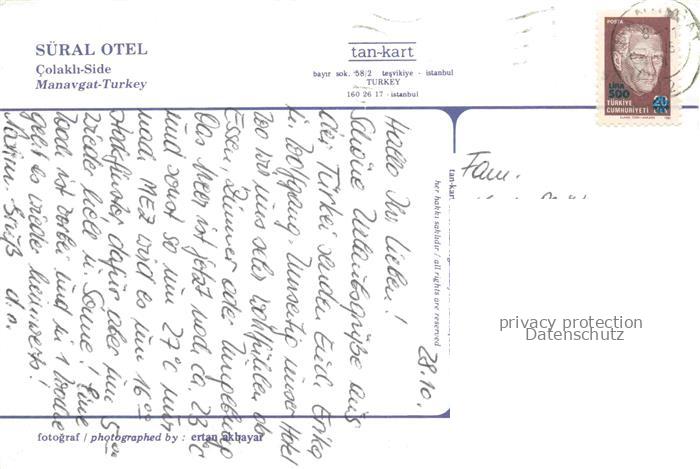 SÜRAL OTEL
Çolaklı-Side
Manavgat-Turkey
tan-kart
bayır sok. 58/2 teşvikiye - istanbul
TURKEY
160 26 17 - istanbul
POSTA
LİRA
500
20
TÜRKİYE
CUMHURİYETİ
28.10.
Hallo Ihr Lieben!
Schöne Urlaubsgrüße aus
der Türkei senden Euch Erika
u. Wolfgang. Umseitig unser Hotel
wo wir uns sehr wohlfühlen, ob
Essen, Zimmer oder Umgebung
Das Meer ist jetzt noch ca. 23°C
und sonst so um 27°C nur
nach MEZ wird es um 16°°
stockfinster, dafür aber um 5°°
wieder hell u. Sonne! Eine
Woche ist vorbei und in 1 Woche
geht es wieder heimwärts!
Gruß
Fam.
tan-kart
her hakkı saklıdır / all rights are reserved
privacy protection
Datenschutz
fotoğraf / photographed by : ertan akbayar